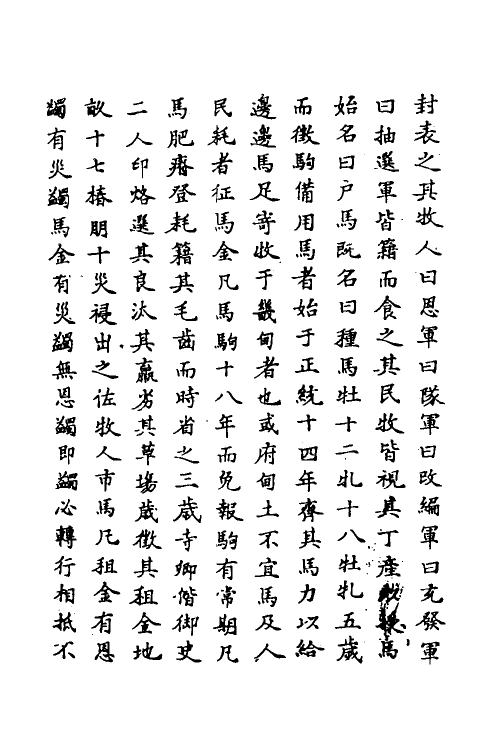 封表之其牧人曰恩軍曰隊軍曰改編軍曰充發軍
曰抽選軍皆籍而食之其民牧皆視其丁產馬
始名曰戶馬既名曰種馬牡十二牝十八牡牝五歲
而徵駒備用馬者始于正統十四年齊其馬力以給
邊邊馬足寄收于畿甸者也或府甸土不宜馬及人
民耗者征馬金凡馬駒十八年而免報駒有常期凡
馬肥瘠登耗籍其毛齒而時省之三歲寺卿偕御史
二人印烙選其良汰其羸劣其草場歲徵其租金地
畝十七樁朋十災祲出之佐牧人市馬凡租金有恩
蠲有災蠲馬金有災蠲無恩蠲即蠲必轉行相抵不